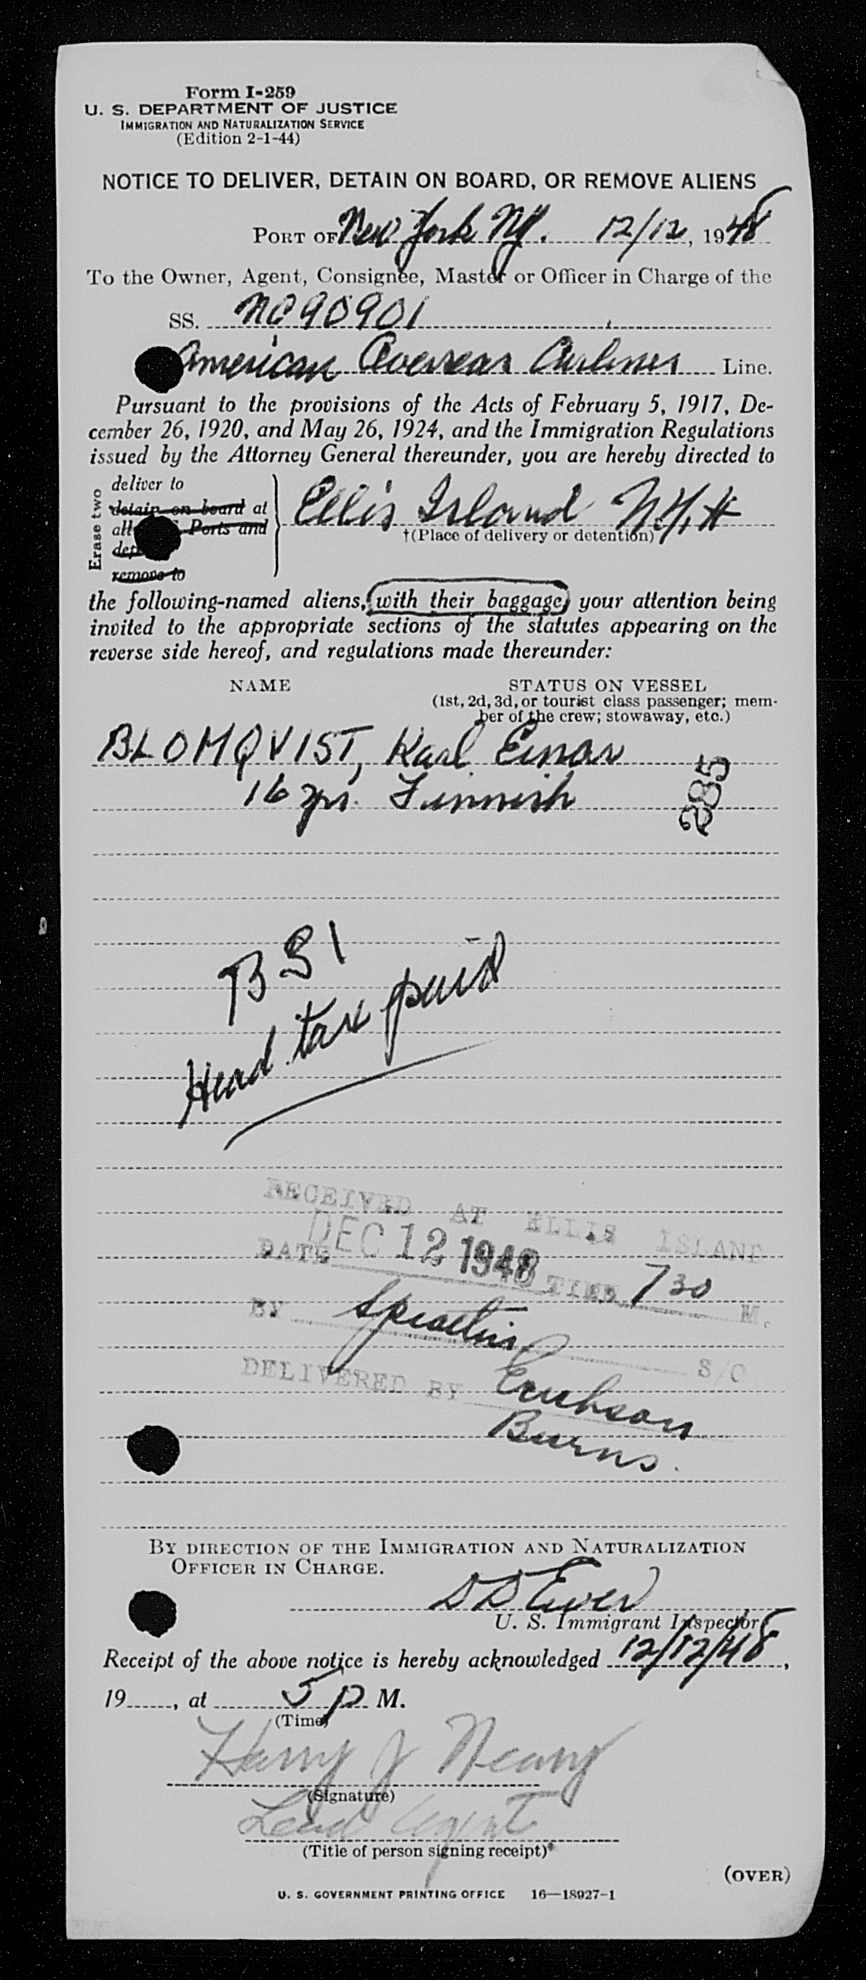 Form I-259
U. S. DEPARTMENT OF JUSTICE
IMMIGRATION AND NATURALIZATION SERVICE
(Edition 2-1-44)
NOTICE TO DELIVER, DETAIN ON BOARD, OR REMOVE ALIENS
PORT OF New York NY. 12/12, 1948
To the Owner, Agent, Consignee, Master or Officer in Charge of the
SS. NC90901
American Overseas Airlines Line.
Pursuant to the provisions of the Acts of February 5, 1917, De-
cember 26, 1920, and May 26, 1924, and the Immigration Regulations
issued by the Attorney General thereunder, you are hereby directed to
Erase two
deliver to
detain on board at
all Ports and
remove to
Ellis Island N.Y.H
†(Place of delivery or detention)
the following-named aliens, with their baggage, your attention being
invited to the appropriate sections of the statutes appearing on the
reverse side hereof, and regulations made thereunder:
NAME STATUS ON VESSEL
(1st, 2d, 3d, or tourist class passenger; mem-
ber of the crew; stowaway, etc.)
BLOMQVIST, Karl Einar
16 yrs. Finnish
285
BSI
Head tax paid
RECEIVED AT ELLIS ISLAND
DATE DEC 12 1948 TIME 7 30 M.
BY S/O
DELIVERED BY Erickson
Burns.
BY DIRECTION OF THE IMMIGRATION AND NATURALIZATION
OFFICER IN CHARGE.
D D Ewer
U. S. Immigrant Inspector
Receipt of the above notice is hereby acknowledged 12/12/48,
19......, at 5 P M.
(Time)
Harry J
(Signature)
Lead Agent
(Title of person signing receipt)*
(OVER)
U. S. GOVERNMENT PRINTING OFFICE 16—18927-1